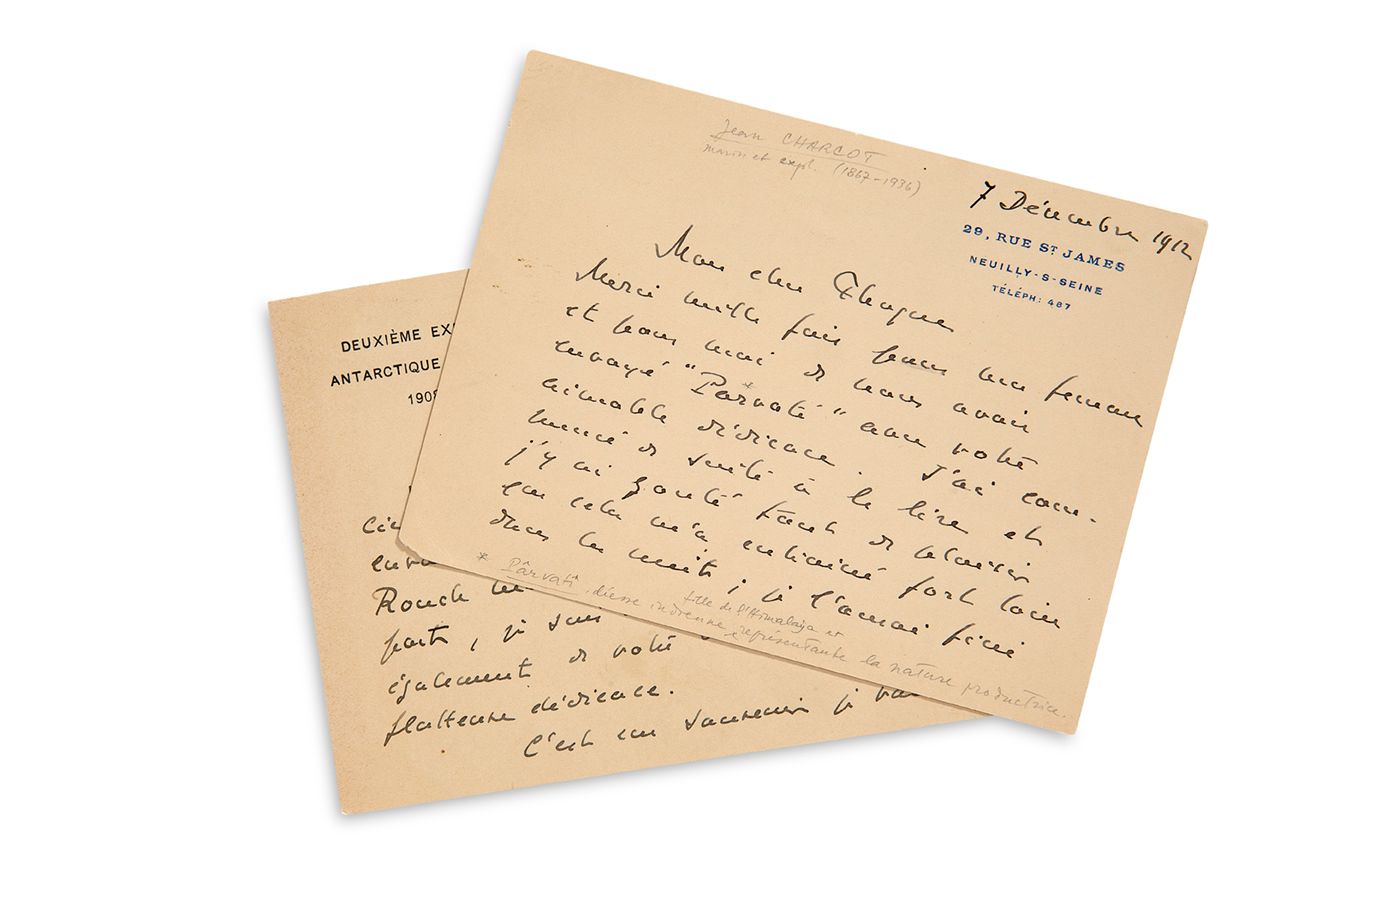 Jean CHARCOT
marin et expl. (1867-1936)
7 Décembre 1912
29, RUE ST JAMES
NEUILLY-S-SEINE
TÉLÉPH: 487
Mon cher
Merci mille fois pour ma femme
et pour moi de nous avoir
envoyé "Parvati" * avec votre
aimable dédicace. J'ai com-
mencé de suite à le lire et
j'y ai goûté tant de plaisir
que cela m'a entrainé fort loin
dans la nuit ; je l'aurai fini
* Pârvatî, déesse indienne, fille de l'Himalaya et
représentante la nature productrice.
DEUXIÈME EX
ANTARCTIQUE
1908
Rouch
part, je suis
également de votre
flatteuse dédicace.
C'est un souvenir je